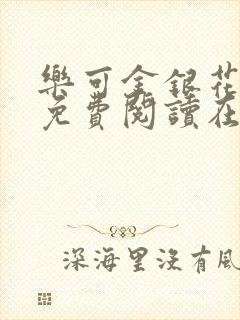 樂可金銀花
免費閱讀在
深海里沒有風